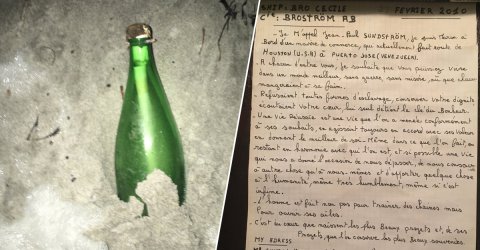 SHIP: BRO CECILE FEVRIER 2010
Cie: BROSTRÖM AB
- Je M'appel Jean-Paul SUNDSTRÖM, je suis Marin à
Bord d'un navire de commerce, qui actuellement fait route de
HOUSTON (U.S.A) à PUERTO JOSE (VENEZUELA).
- A chacun d'entre vous, je souhaite que vous puissiez vivre
dans un monde meilleur, sans guerre, sans misère, où que chacun
mangeraient à sa faim.
- Refusaient toutes formes d'esclavage, conserver votre dignité
écoutaient votre cœur, lui seul détient la clé du Bonheur
- Une vie Réussie est une vie que l'on a menée conformément
à ses souhaits, en agissant toujours en accord avec ses valeurs
en donnant le meilleur de soi-Même dans ce que l'on fait, en
restant en harmonie avec qui l'on est, et si possible une vie
qui nous a donné l'occasion de nous dépasser, de nous consacrer
à autre chose qu'à nous-mêmes et d'apporter quelque chose
à l'humanité, même très humblement, même si c'est
infime.
- L'homme est fait non pas pour traîner des chaînes mais
Pour ouvrir ses ailes.
- C'est du cœur que naissent les plus Beaux projets, et, de ses
Projets, que l'on conserve les plus Beaux souvenirs.
MY ADRESS